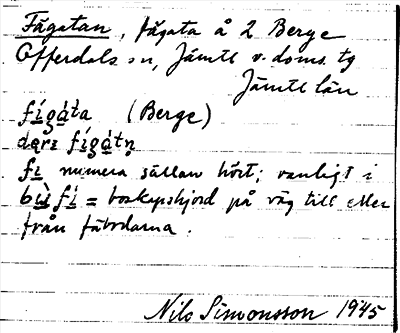 Fägatan, fägata å 2 Berge
Offerdals sn, Jämtl v. doms. tg
Jämtl län
fígàta (Berge)
fígàtn̥
fi numera sällan hört; vanligt i
bù fí = boskapshjord på väg till eller
från fäbodarna.
Nils Simonsson 1945